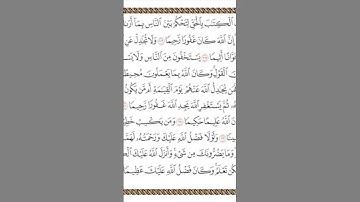 ٱلْكِتَٰبَ بِٱلْحَقِّ لِتَحْكُمَ بَيْنَ ٱلنَّاسِ بِمَآ
إِنَّ ٱللَّهَ كَانَ غَفُورًا رَّحِيمًا وَلَا تُجَٰدِلْ عَنِ
أَثِيمًا يَسْتَخْفُونَ مِنَ ٱلنَّاسِ وَلَا
ٱلْقَوْلِ وَكَانَ ٱللَّهُ بِمَا يَعْمَلُونَ مُحِيطًا
يُجَٰدِلُ ٱللَّهَ عَنْهُمْ يَوْمَ ٱلْقِيَٰمَةِ أَم مَّن يَكُونُ
ثُمَّ يَسْتَغْفِرِ ٱللَّهَ يَجِدِ ٱللَّهَ غَفُورًا رَّحِيمًا
ٱللَّهُ عَلِيمًا حَكِيمًا وَمَن يَكْسِبْ
وَلَوْلَا فَضْلُ ٱللَّهِ عَلَيْكَ وَرَحْمَتُهُۥ
وَمَا يَضُرُّونَكَ مِن شَىْءٍ وَأَنزَلَ ٱللَّهُ عَلَيْكَ
تَعْلَمُ وَكَانَ فَضْلُ ٱللَّهِ عَلَيْكَ عَظِيمًا